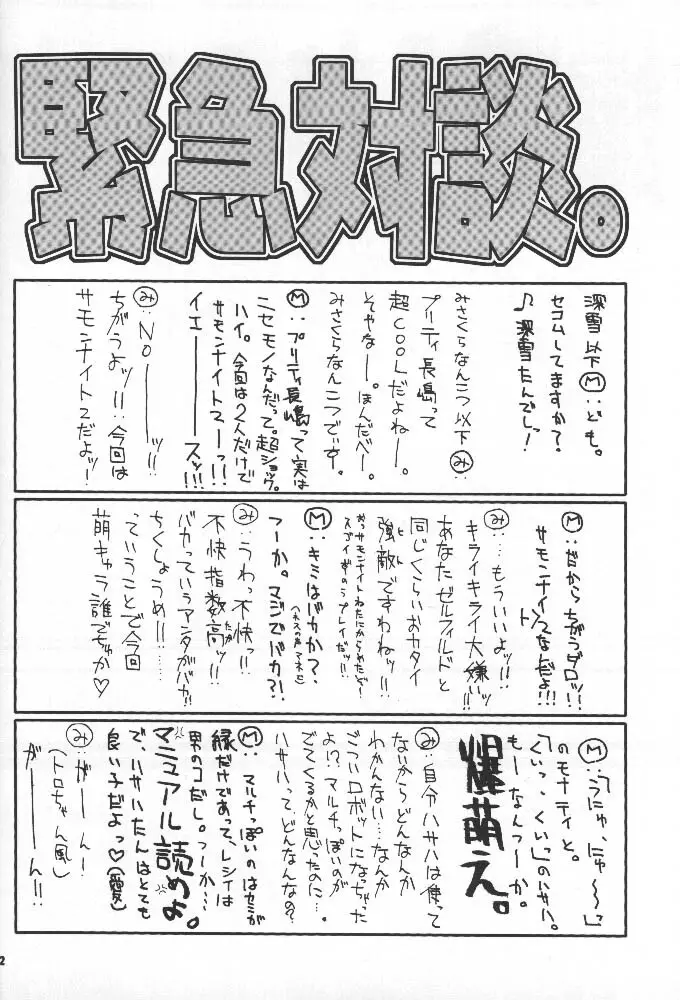 緊急対談。
深雪以下Ⓜ:ども。
セコムしてますか?
♪深雪たんでし!
みさくらなんこつ以下み:
プリティ長嶋って
超COOLだよねー。
そやなー。ほんだべー。
みさくらなんこつでいす。
Ⓜ:プリティ長嶋って実は
ニセモノなんだって。超ショック。
ハイ。今回は2人だけで
サモンナイトマーっ!!
イエーースッ!!!
み:NOーーッ!!
ちがうよッ!!:今回は
サモンナイト2だよッ!
Ⓜ:だからちがうダロッ!!
サモンナイトンマなんだよ!!!
み:…もういいよッ!!
キライキライ大嫌いッ!!
あなたゼルフィルドと
同じくらいおカタイ
強敵ですわねッ!!
Ⓜ:キミはバカか?、
つーか。マジでバカ?!
み:うわっ不快っ!!
不快指数高ッ!!
バカっていうアンタがバカ!!
ちくしょうめ!!……
っていうことで今回
萌キャラ誰でぃすか♡
Ⓜ:「うにゅ、にゅ〜〜」
のモナティと。
「くいっ、くいっ」のハサハ。
もーなんつーか。
爆萌え。
み:自分ハサハは使って
ないからどんなんか
わかんない…なんか
ごついロボットになっちゃった
よ!?マルチっぽいのが
でてくるかと思ったのに…。
ハサハってどんなんなの?
Ⓜ:マルチっぽいのはセミが
縁だけであって、レシィは
男のコだし。つーか…
マニュアル読めよ。
で、ハサハたんはとても
良い子だよっ♡(愛)
み:がーん!
(トロちゃん風)
がーーん!!
2